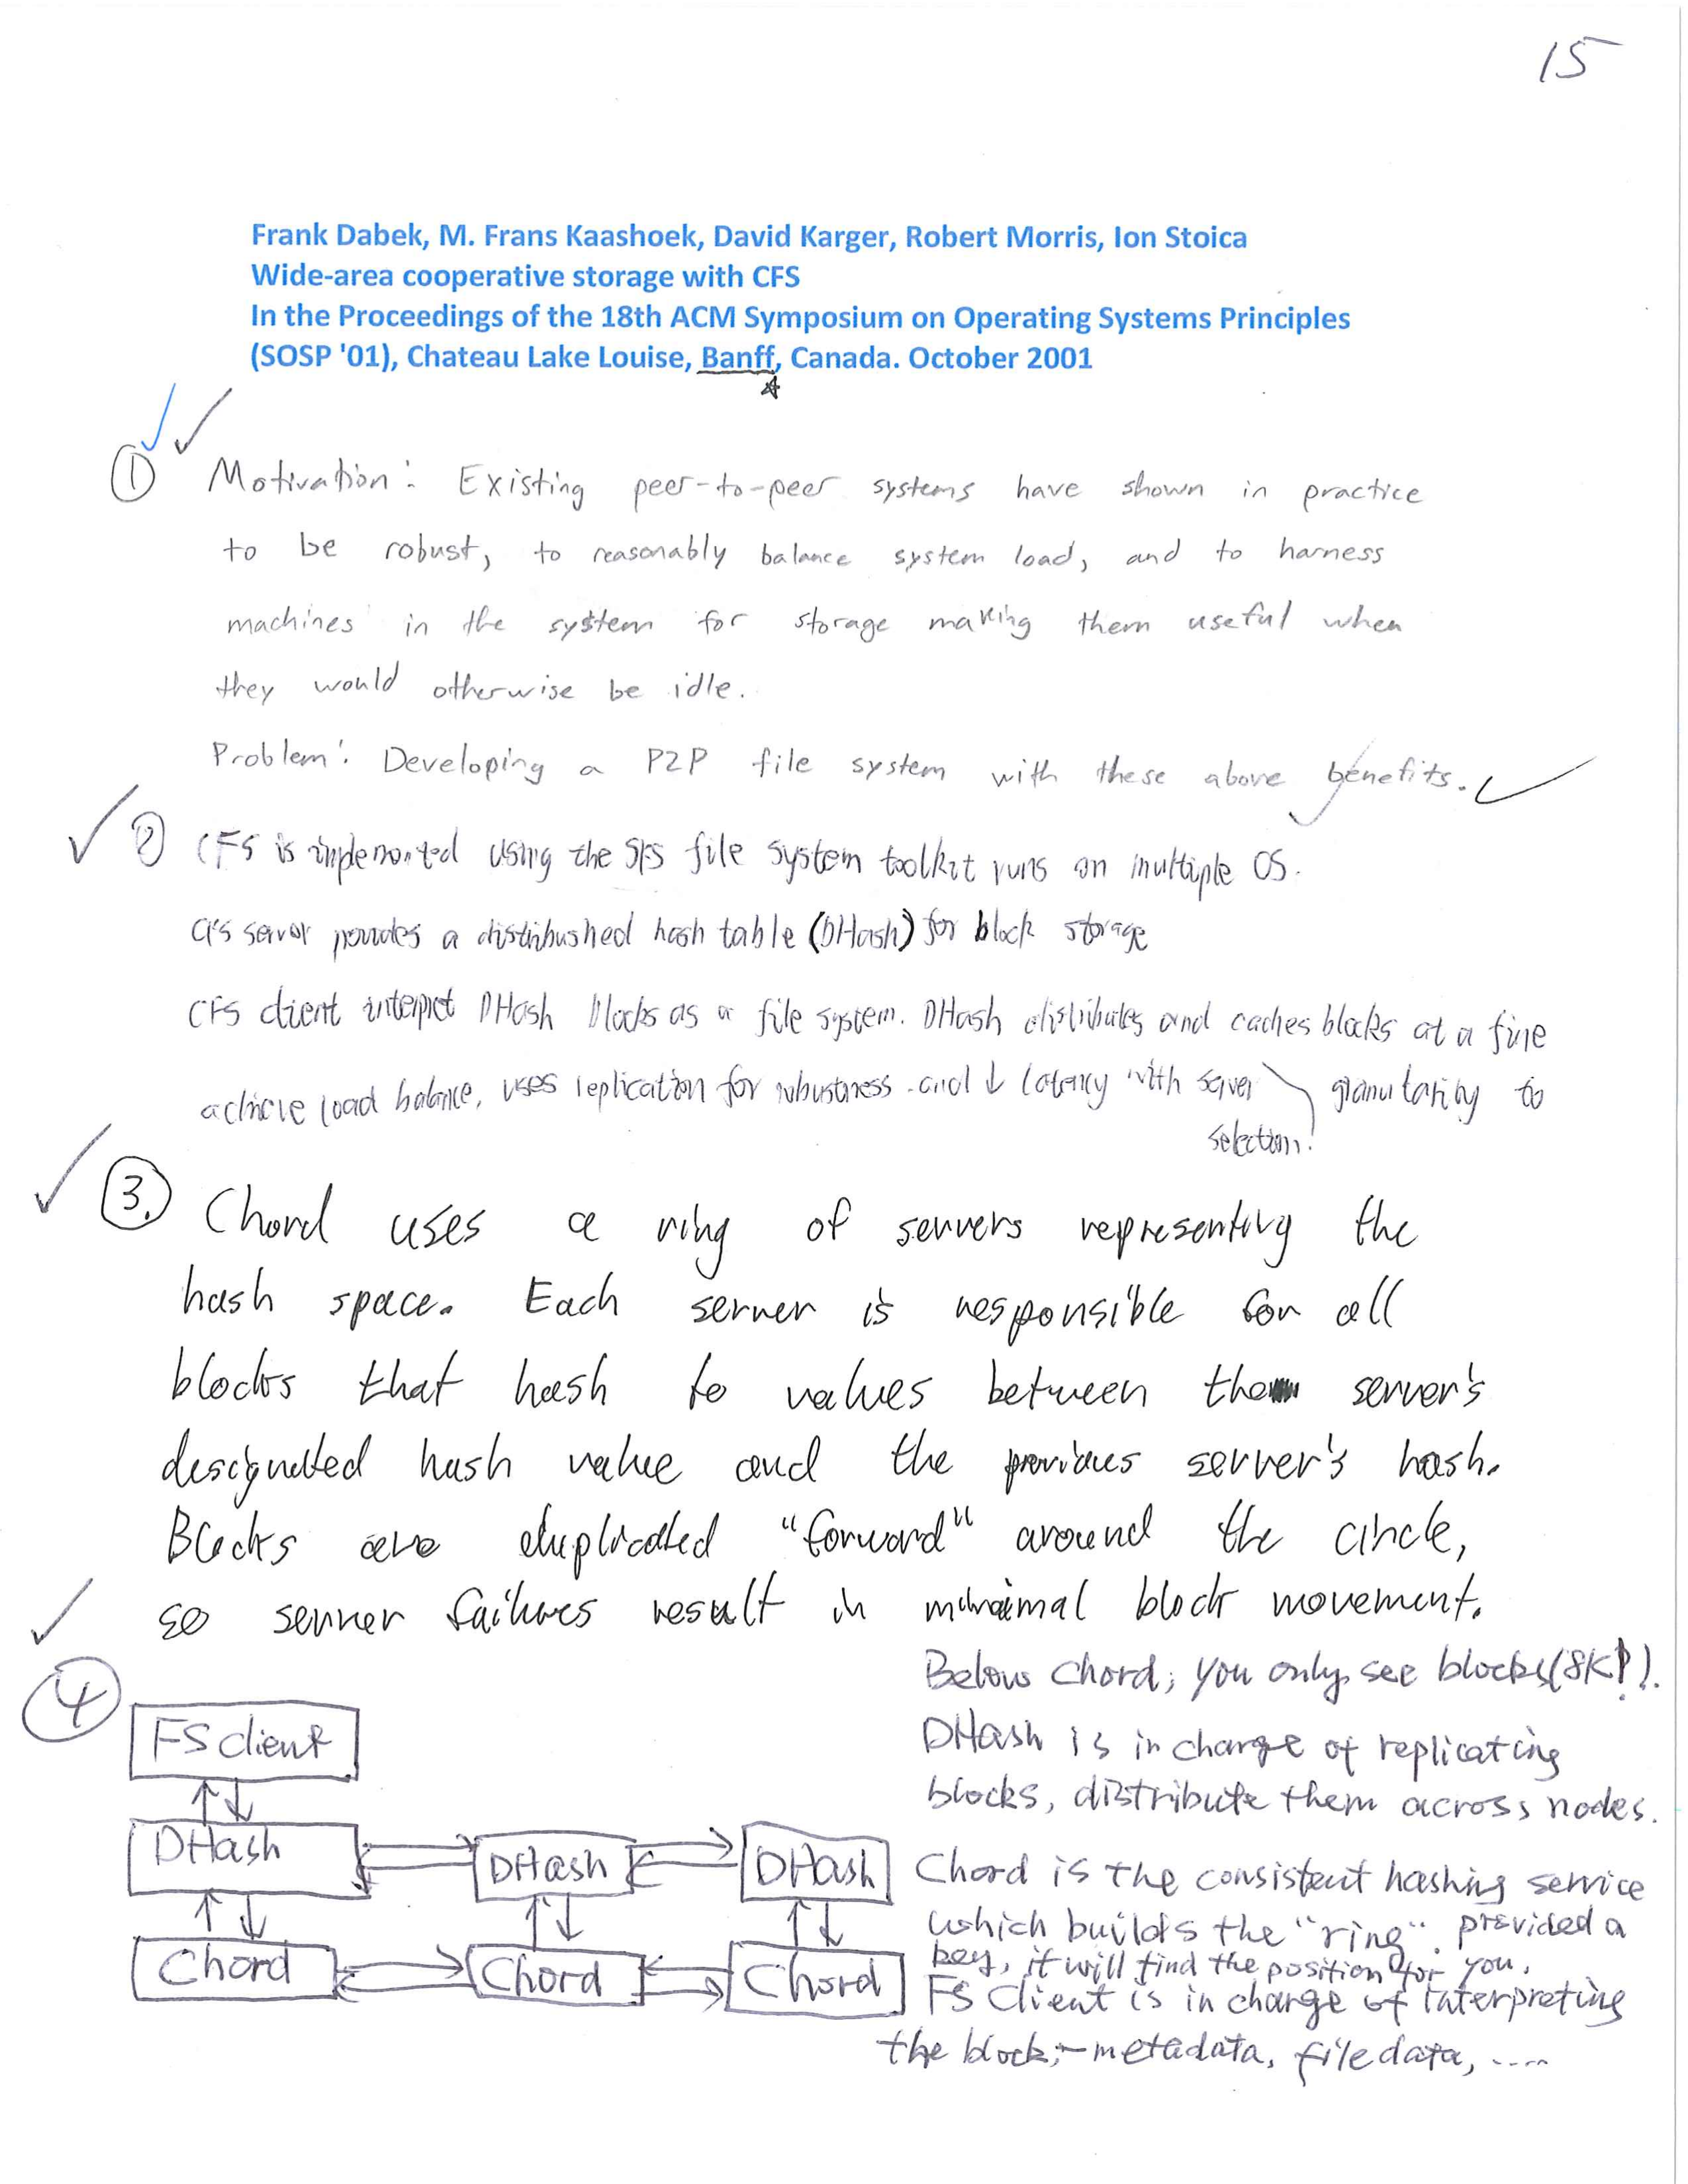 15
Frank Dabek, M. Frans Kaashoek, David Karger, Robert Morris, Ion Stoica
Wide-area cooperative storage with CFS
In the Proceedings of the 18th ACM Symposium on Operating Systems Principles
(SOSP '01), Chateau Lake Louise, Banff, Canada. October 2001
① Motivation: Existing peer-to-peer systems have shown in practice
to be robust, to reasonably balance system load, and to harness
machines in the system for storage making them useful when
they would otherwise be idle.
Problem: Developing a P2P file system with these above benefits.
② CFS is implemented using the SFS file system toolkit runs on multiple OS.
CFS server provides a distribushed hash table (DHash) for block storage
CFS client interpret DHash blocks as a file system. DHash distributes and caches blocks at a fine
granularity to
achieve load balance, uses replication for robustness and ↓ latency with server
selection.
③ Chord uses a ring of servers representing the
hash space. Each server is responsible for all
blocks that hash to values between the server's
designated hash value and the previous server's hash.
Blocks are duplicated "forward" around the circle,
so server failures result in minimal block movement.
④
FS client
DHash DHash DHash
Chord Chord Chord
Below Chord, you only see blocks (8K?).
DHash is in charge of replicating
blocks, distribute them across nodes.
Chord is the consistent hashing service
which builds the "ring". provided a
key, it will find the position for you.
FS Client is in charge of interpreting
the block; - metadata, file data, ....